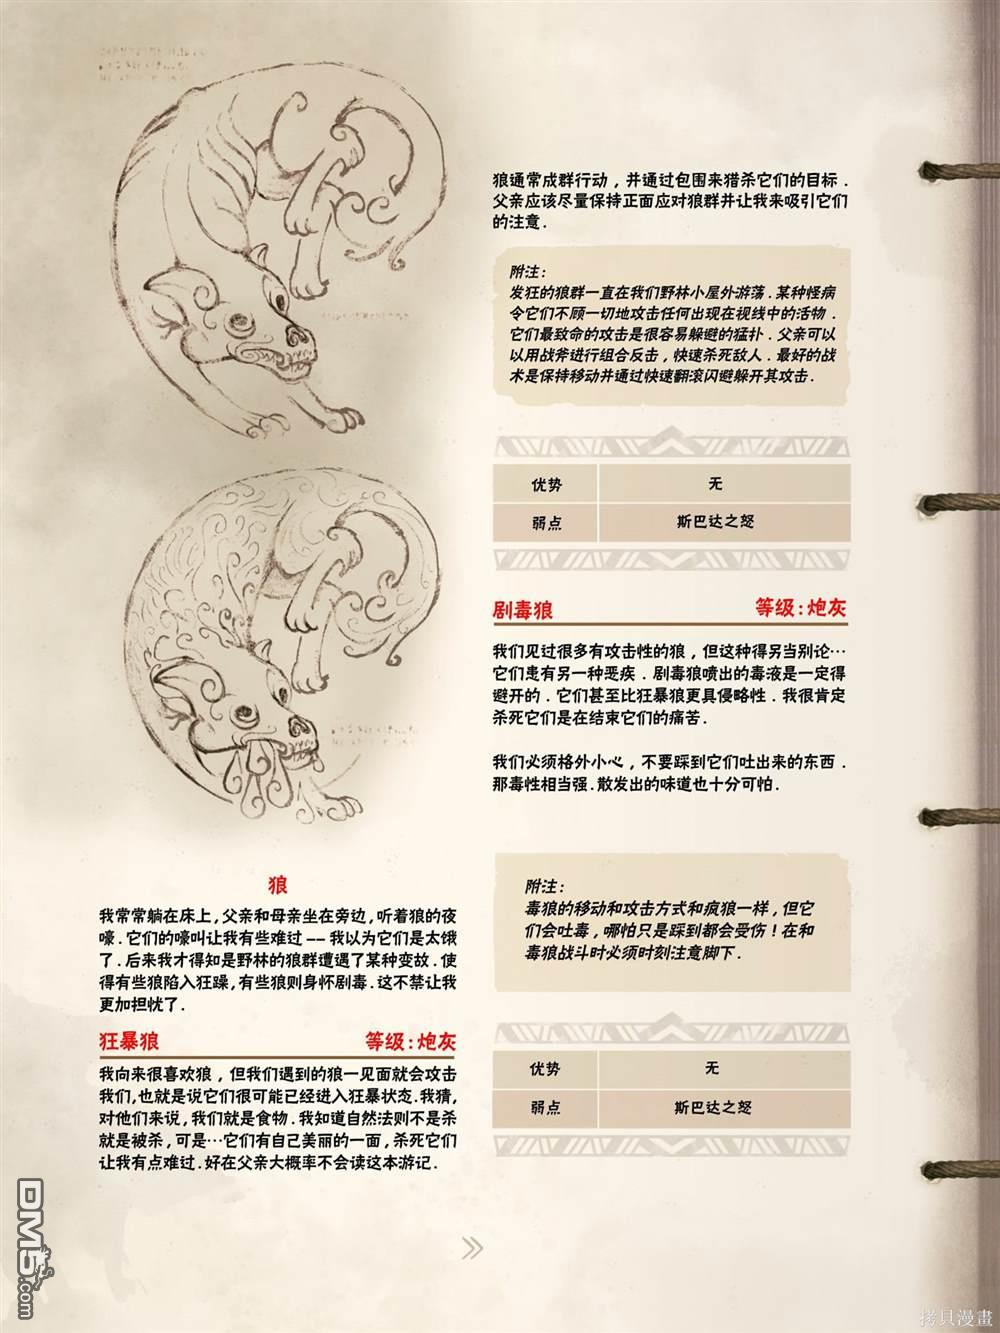 狼
我常常躺在床上,父亲和母亲坐在旁边,听着狼的夜
嚎.它们的嚎叫让我有些难过——我以为它们是太饿
了.后来我才得知是野林的狼群遭遇了某种变故.使
得有些狼陷入狂躁,有些狼则身怀剧毒.这不禁让我
更加担忧了.
狂暴狼 等级:炮灰
我向来很喜欢狼,但我们遇到的狼一见面就会攻击
我们,也就是说它们很可能已经进入狂暴状态.我猜,
对他们来说,我们就是食物.我知道自然法则不是杀
就是被杀,可是…它们有自己美丽的一面,杀死它们
让我有点难过.好在父亲大概率不会读这本游记.
狼通常成群行动,并通过包围来猎杀它们的目标.
父亲应该尽量保持正面应对狼群并让我来吸引它们
的注意.
附注:
发狂的狼群一直在我们野林小屋外游荡.某种怪病
令它们不顾一切地攻击任何出现在视线中的活物.
它们最致命的攻击是很容易躲避的猛扑.父亲可以
以用战斧进行组合反击,快速杀死敌人.最好的战
术是保持移动并通过快速翻滚闪避躲开其攻击.
优势 无
弱点 斯巴达之怒
剧毒狼 等级:炮灰
我们见过很多有攻击性的狼,但这种得另当别论…
它们患有另一种恶疾.剧毒狼喷出的毒液是一定得
避开的.它们甚至比狂暴狼更具侵略性.我很肯定
杀死它们是在结束它们的痛苦.
我们必须格外小心,不要踩到它们吐出来的东西.
那毒性相当强.散发出的味道也十分可怕.
附注:
毒狼的移动和攻击方式和疯狼一样,但它
们会吐毒,哪怕只是踩到都会受伤!在和
毒狼战斗时必须时刻注意脚下.
优势 无
弱点 斯巴达之怒
DM5.com
拷貝漫畫